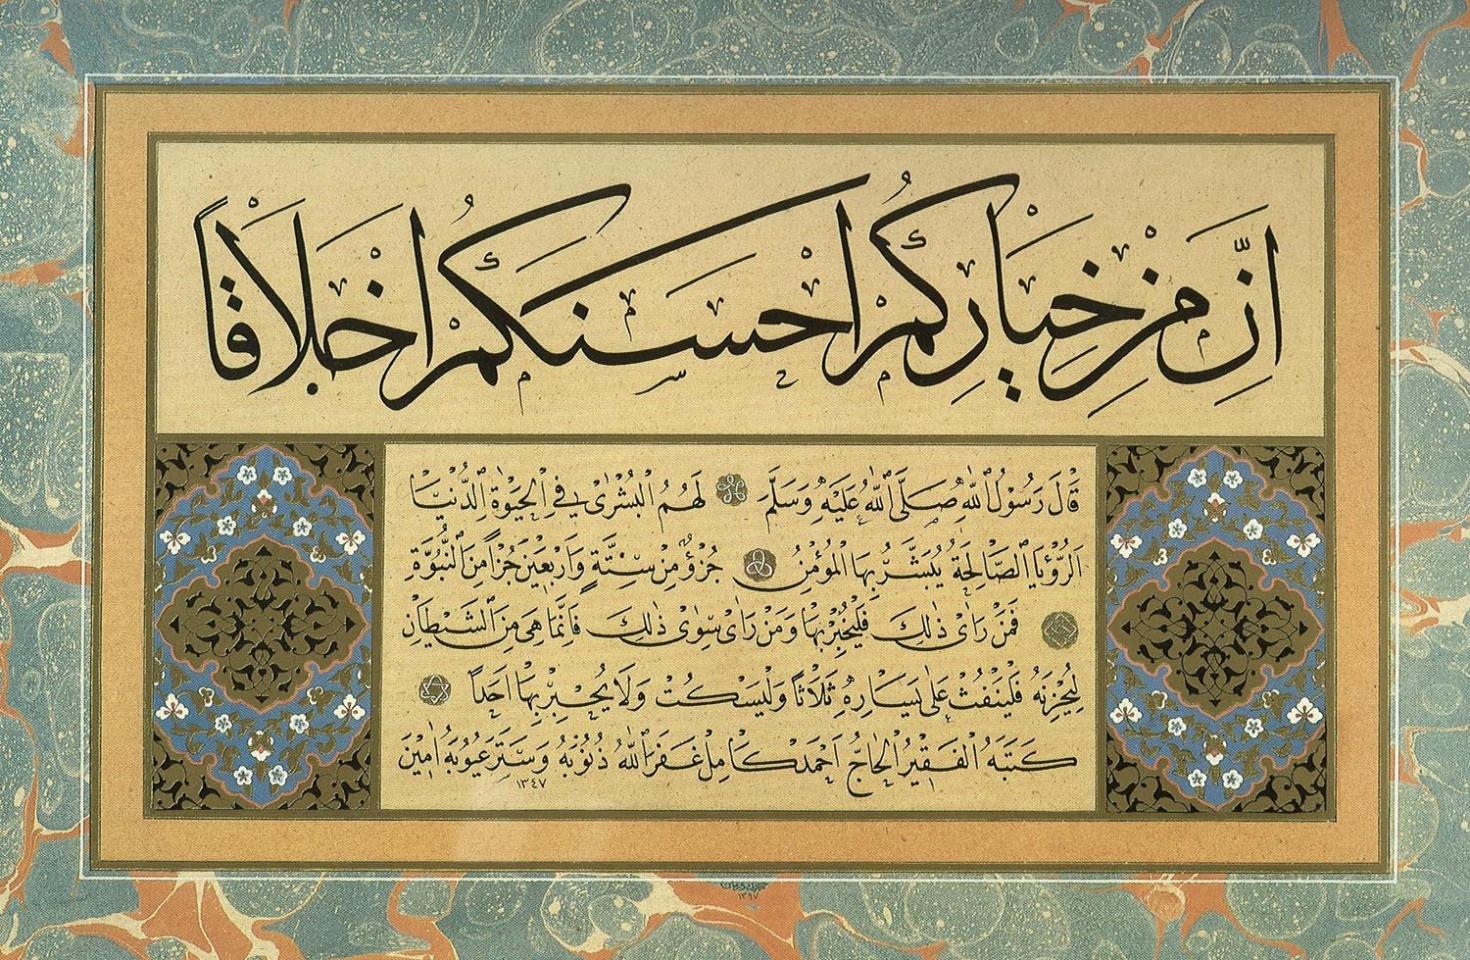 اِنَّ مِنْ خِيَارِكُمْ اَحْسَنَكُمْ اَخْلَاقاً
قَالَ رَسُولُ اللّٰهِ صَلَّى اللّٰهُ عَلَيْهِ وَسَلَّمَ لَهُمُ الْبُشْرٰى فِي الْحَيٰوةِ الدُّنْيَا
اَلرُّؤْيَا الصَّالِحَةُ يُبَشَّرُ بِهَا الْمُؤْمِنُ جُزْؤٌ مِنْ سِتَّةٍ وَاَرْبَعِينَ جُزْاً مِنَ النُّبُوَّةِ
فَمَنْ رَاٰى ذٰلِكَ فَلْيُخْبِرْ بِهَا وَمَنْ رَاٰى سِوٰى ذٰلِكَ فَاِنَّمَا هِيَ مِنَ الشَّيْطَانِ
لِيُحْزِنَهُ فَلْيَنْفُثْ عَلٰى يَسَارِهِ ثَلَاثاً وَلْيَسْكُتْ وَلَا يُخْبِرْ بِهَا اَحَداً
كَتَبَهُ الْفَقِيرُ الْحَاجُّ اَحْمَدْ كَامِلْ غَفَرَ اللّٰهُ ذُنُوبَهُ وَسَتَرَ عُيُوبَهُ اٰمِينَ
١٣٤٧
١٣٩٧